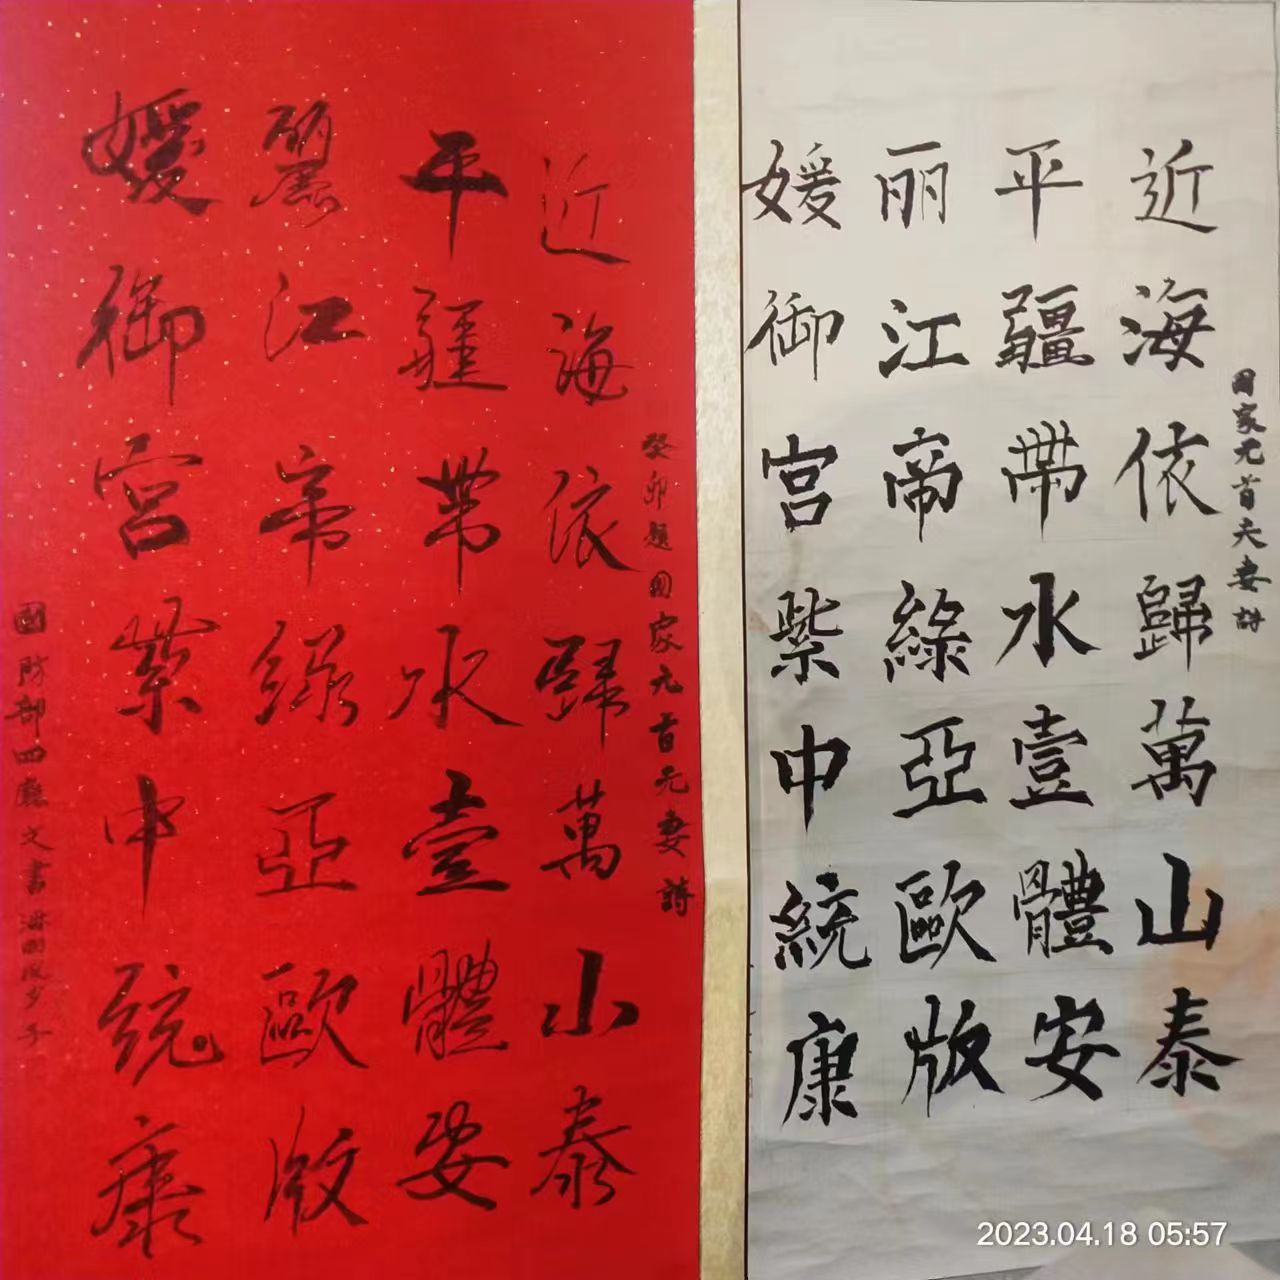 国家元首夫妻詩
近海依歸萬山泰
平疆带水壹體安
丽江帝綠亞歐版
媛御宫紫中統康
癸卯題國家元首元妻詩
近海依歸萬山泰
平疆带水壹體安
麗江帝綠亞歐版
媛御宫紫中統康
國防部四廳文書
2023.04.18 05:57